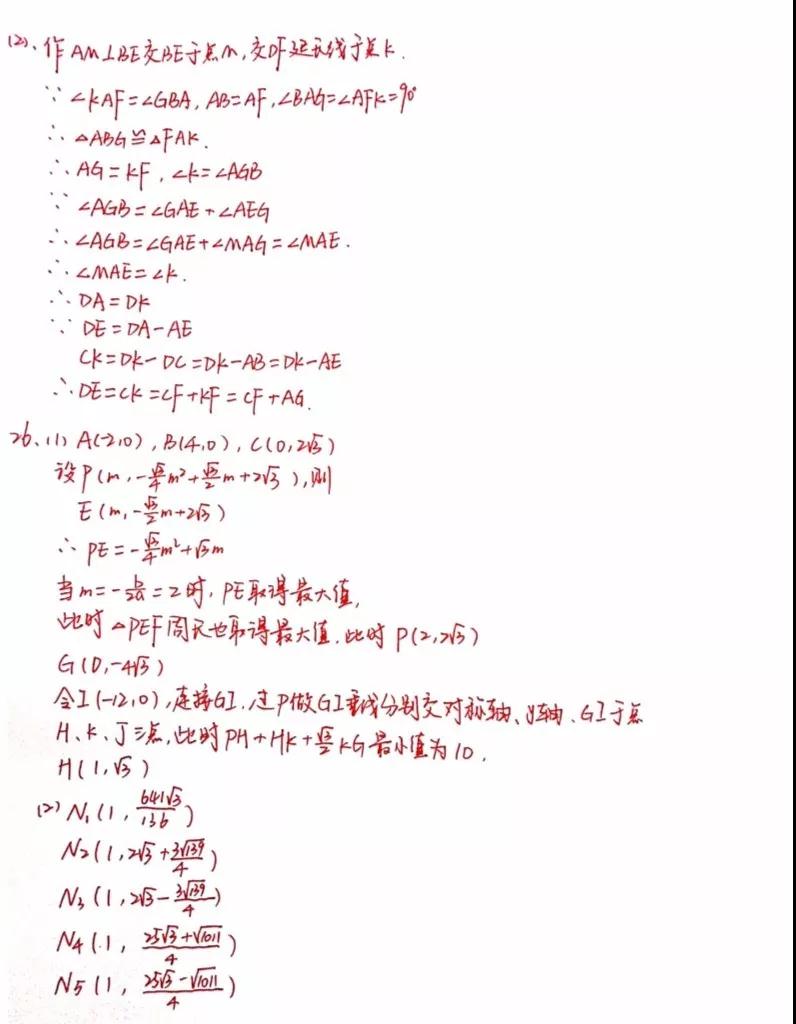 (2)、作AM⊥BE交BE于点M,交DF延长线于点K.
∵ ∠KAF=∠GBA, AB=AF,∠BAG=∠AFK=90°
∴ △ABG≌△FAK.
∴ AG=KF , ∠K=∠AGB
∵ ∠AGB=∠GAE+∠AEG
∴ ∠AGB=∠GAE+∠MAG=∠MAE.
∴ ∠MAE=∠K.
∴ DA=DK
∵ DE=DA-AE
CK=DK-DC=DK-AB=DK-AE
∴ DE=CK=CF+KF=CF+AG.
26、(1) A(-2,0) , B(4,0) , C(0,2√3)
设P(m,-√3/4m²+√3/2m+2√3),则
E(m,-√3/2m+2√3)
∴ PE=-√3/4m²+√3m
当m=-b/2a=2时, PE取得最大值,
此时△PEF周长也取得最大值.此时P(2,2√3)
G(0,-4√3)
令I(-12,0),连接GI,过P做GI垂线分别交对称轴、y轴、GI于点
H、K、J三点,此时PH+HK+√3/2KG最小值为10.
H(1,√3)
(2) N₁(1, 641√3/136)
N2(1,2√3+3√139/4)
N3(1,2√3-3√139/4)
N4(1, 25√3+√1011/4)
N5(1, 25√3-√1011/4)